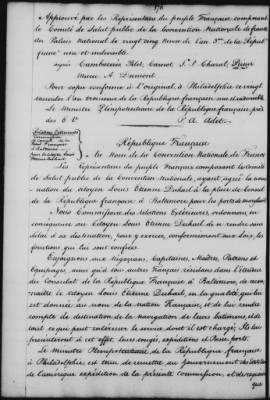 176
Approuvé par les Représentans du peuple Français composant
le Comité de Salut public de la Convention Nationale de france
au Palais National le vingt cinq de l'an 3e de la Répu
blique une et indivisible
signés Cambacérès Pelet, Carnot, J. P. Chazal, Prieur
Merlin A. Dumont
Pour copie conforme à l'original, à Philadelphie le vingt
de la République française une et indivisible
Le Ministre Plénipotentiaire de la République française, près
des E. U P. A. Adet.
République Française
Relations Extérieures
Commission
à Baltimore
Au Nom de la Convention Nationale de France
Les Représentans du peuple Français composant le Comité
de Salut public de la Convention Nationale, ayant agréé la nomi
nation du citoyen Louis Etienne Duhail à la place de Consul
de la République française à Baltimore
Nous Commissaire des Relations Extérieures, ordonnons, en
conséquence au Citoyen Louis Etienne Duhail de se rendre sans
délai à sa destination, pour y exercer, conformément aux Loix, les
fonctions qui lui sont confiées
Enjoignons aux Négocians, Capitaines, Maitres, Patrons et
Equipages, ainsi qu'à tous autres Français résidans dans l'étendue
du Consulat de la République Française à Baltimore, de recon
naître le citoyen Louis Etienne Duhail, en la qualité qui lui
est donnée au nom de la nation Française, et de lui rendre
compte de destination de la navigation de leurs batimens, et de
tout ce qui peut intéresser le service dont il est chargé. Ils lui
présenteront à cet effet leurs congés, expéditions et Passe ports.
Le Ministre Plenipotentiaire de la République française
à Philadelphie, est tenu de remettre au Gouvernement des Etats Unis
de l'amérique expédition de la présente Commission, et de requérir
que